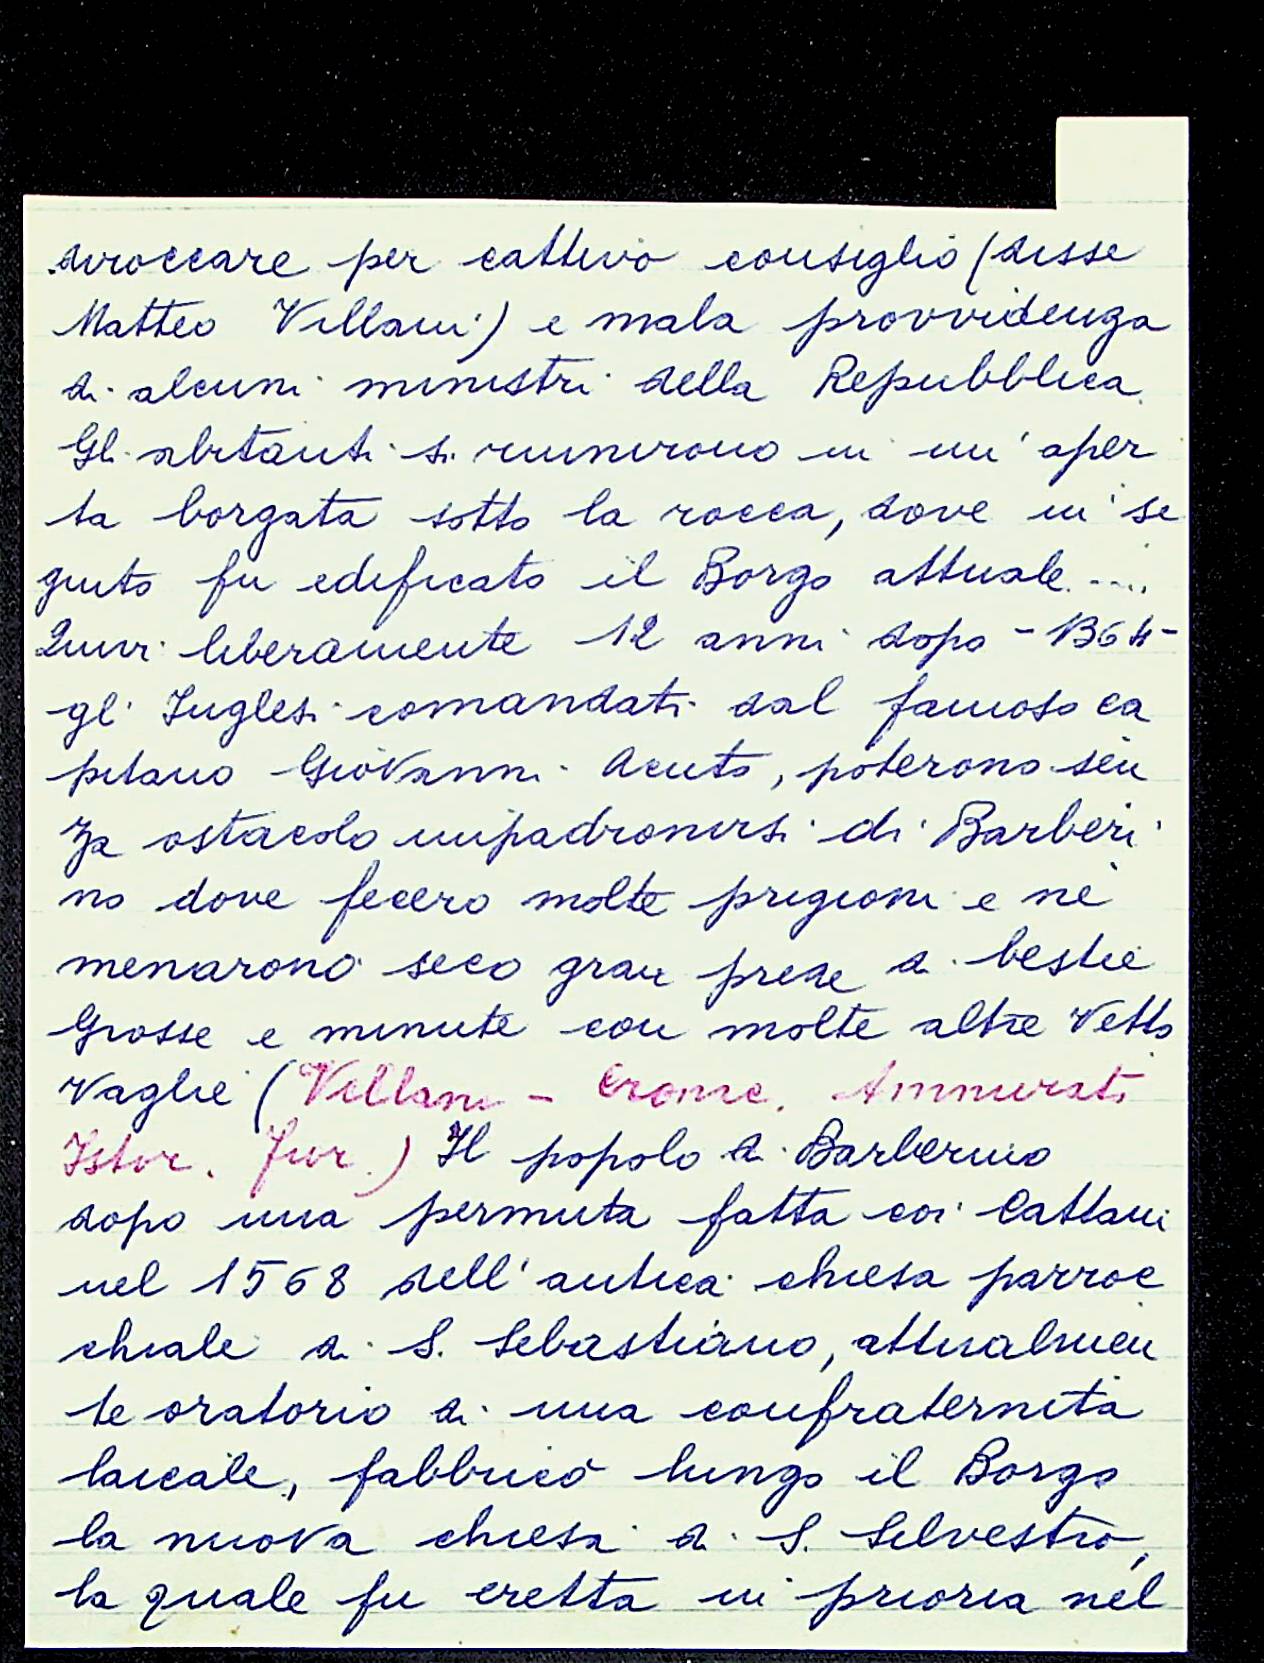 diroccare per cattivo consiglio (disse
Matteo Villani) e mala provvidenza
di alcuni ministri della Repubblica.
Gli abitanti si riunirono in un' aper
ta borgata sotto la rocca, dove in se
guito fu edificato il Borgo attuale....
Quivi liberamente 12 anni dopo - 1364 -
gl' Inglesi comandati dal famoso ca
pitano Giovanni Acuto, poterono sen
za ostacolo impadronirsi di Barberi
no dove fecero molte prigioni e ne
menarono seco gran prede di bestie
Grosse e minute con molte altre vetto
vaglie (Villani - Cronic. Ammirati
Istor. Fior.) Il popolo di Barberino
dopo una permuta fatta coi Cattani
nel 1568 dell' antica chiesa parroc
chiale di S. Sebastiano, attualmen
te oratorio di una confraternita
laicale, fabbricò lungo il Borgo
la nuova chiesa di S. Silvestro,
la quale fu eretta in prioria nel